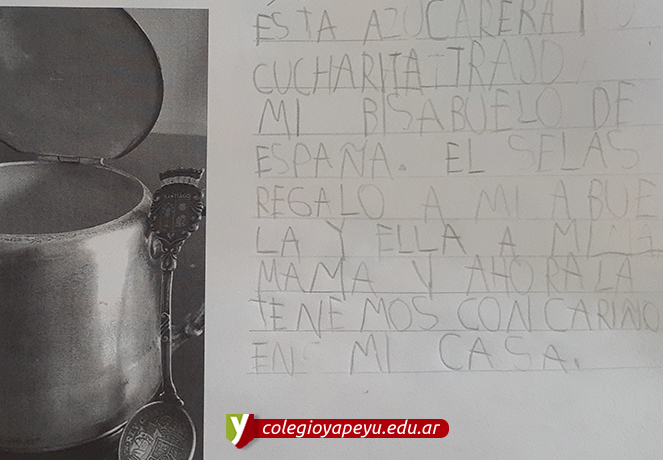 ÉSTA AZUCARERA Y
CUCHARITA TRAJO
MI BISABUELO DE
ESPAÑA. EL SELAS
REGALO A MI ABUE
LA Y ELLA A MI
MAMA Y AHORA LA
TENEMOS CON CARIÑO
EN MI CASA.
SANTIAGO
colegioyapeyu.edu.ar